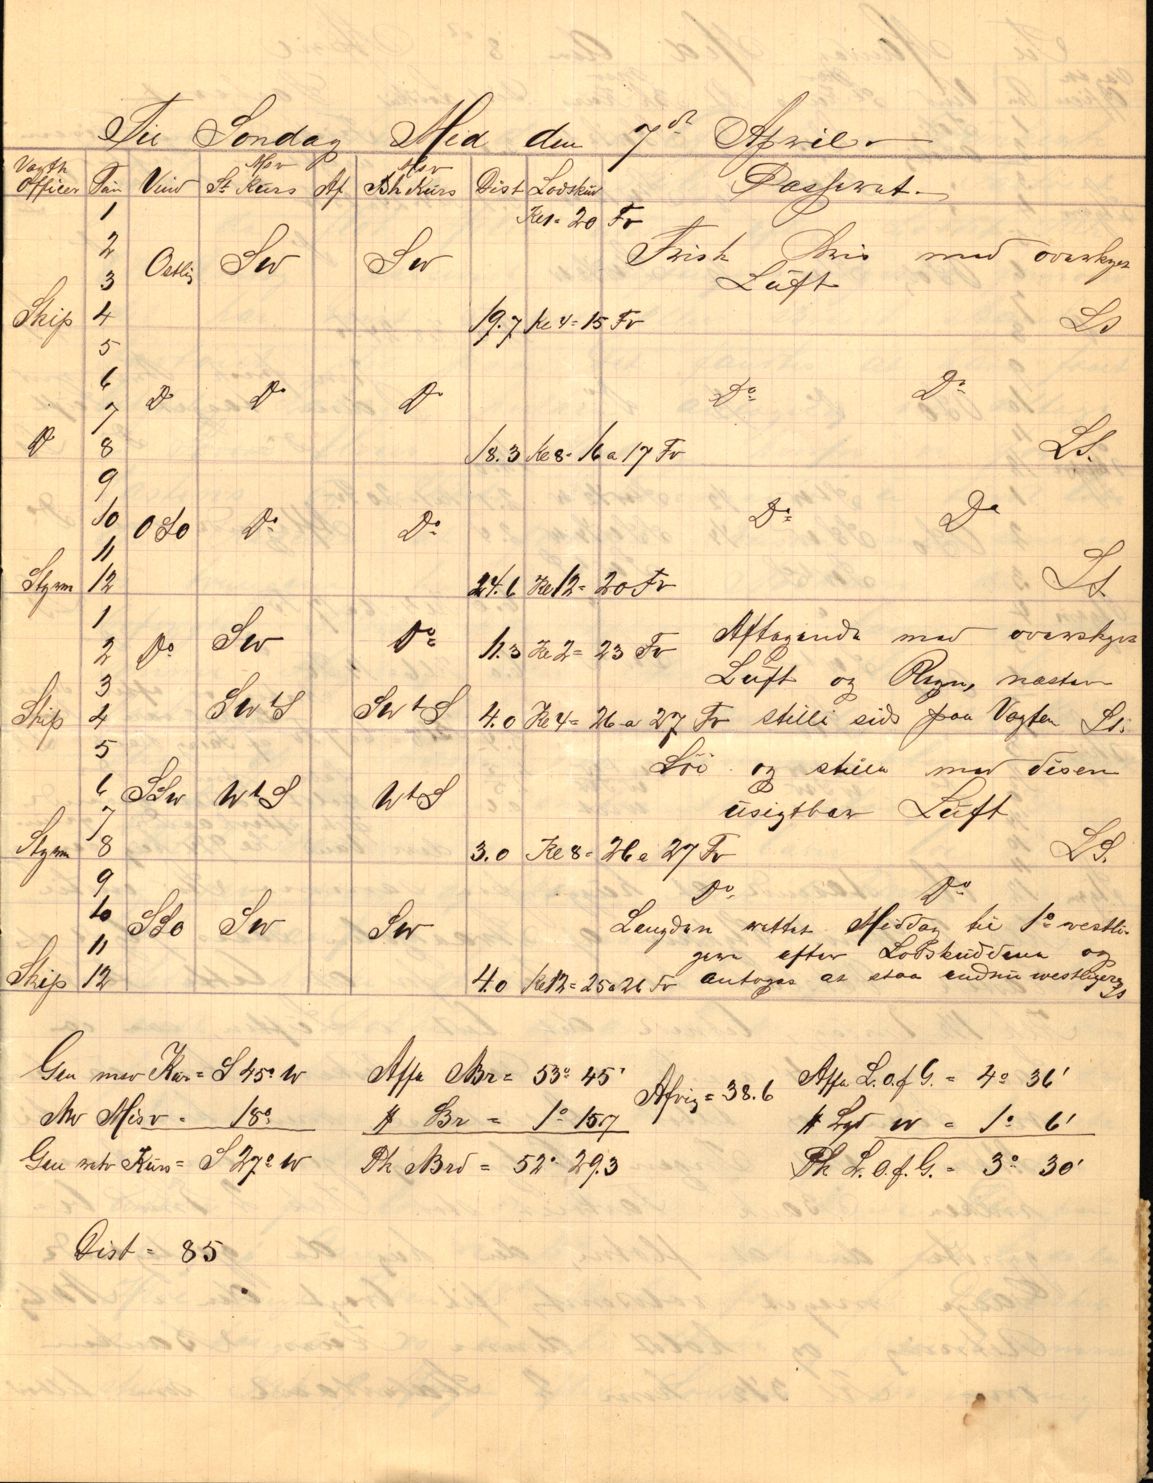 Til Søndag Med den 7de April
Vagth Officer Tim Vind St msv Kurs Af Bh Msv Kurs Dist Lodskud Passerat.
1 Kl 1 = 20 Fv
2 Ostlig SW SW Frisk Bris med overskyet
3 Luft
Skip 4 19.7 Kl 4 = 15 Fv LS
5
6 Do Do Do Do Do
7
Do 8 18.3 Kl 8 = 16 a 17 Fv LS.
9
10 OSO Do Do Do Do
11
Styrm 12 24.6 Kl 12 = 20 Fv LS
1 Aftagende med overskyet
2 Do SW Do 11.3 Kl 2 = 23 Fv
3 Luft og Regn, næsten
Skip 4 SW t S SW t S 4.0 Kl 4 = 26 a 27 Fv stille sids paa Vagten LS.
5 Löi og stille med disen
6 SSW W t S W t S usigtbar Luft
7
Styrm 8 3.0 Kl 8 = 26 a 27 Fv LS.
9 Do Do
10 SSO SW SW Lengden rettet Middag til 1° vestli-
11 gere efter Lodskuddene og
Skip 12 4.0 Kl 12 = 25 a 26 Fv antoges at staa endnu westligere LS
Gen msv Kur = S 45° W Affa Br = 53° 45' Afvig = 38.6 Affa L. o. f G. = 4° 36'
Mv Misv = 18° Br = 1° 15.7 Lgd W = 1° 6'
Gen retv Kurs = S 27° W Ph Brd = 52° 29.3 Ph L. o. f. G. = 3° 30'
Dist = 85